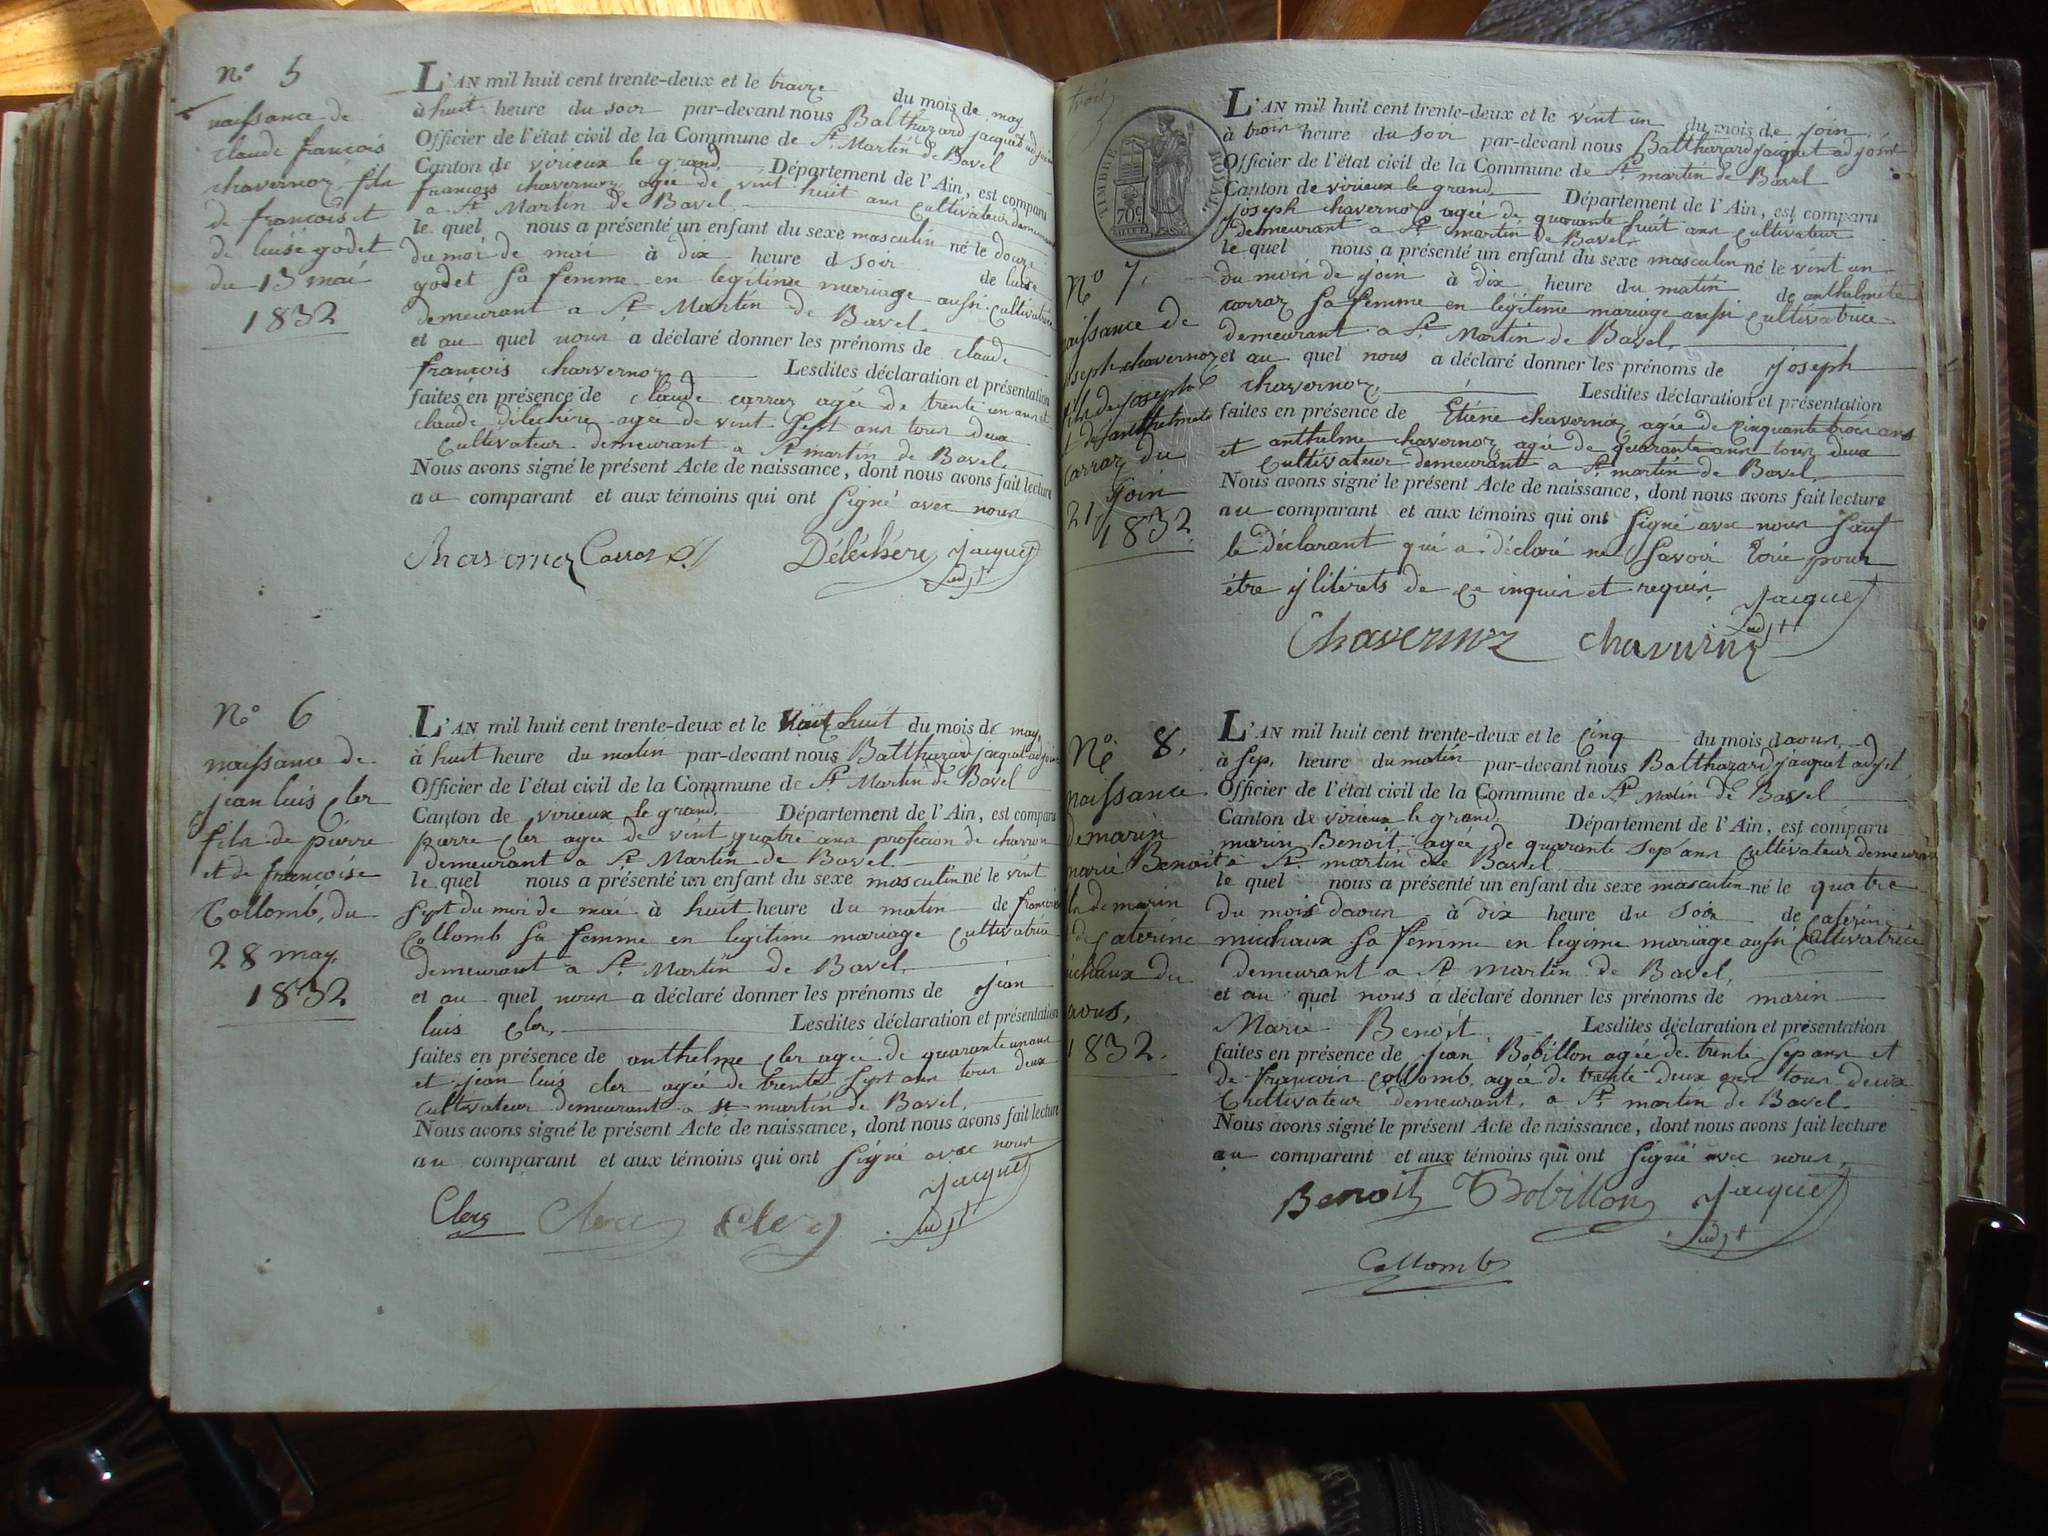 N° 5
naissance de
claude françois
chavernoz fils
de françois et
de luise godet
du 13 mai
1832
L'AN mil huit cent trente-deux et le traize du mois de may
à huit heure du soir par-devant nous Balthazard jacquet adjoint
Officier de l'état civil de la Commune de St Martin de Bavel
Canton de virieux le grand Département de l'Ain, est comparu
françois chavernoz agée de vint huit ans cultivateur demeurant
a St Martin de Bavel
le quel nous a présenté un enfant du sexe masculin né le douze
du moi de mai à dix heure d soir de luise
godet sa femme en legitime mariage aussi cultivatrice
demeurant a St Martin de Bavel
et au quel nous a déclaré donner les prénoms de claude
françois charvernoz Lesdites déclaration et présentation
faites en présence de claude carraz agée de trente un ans et
claude déléchère agée de vint sept ans tous deux
cultivateur demeurant a St martin de Bavel
Nous avons signé le présent Acte de naissance, dont nous avons fait lecture
au comparant et aux témoins qui ont signé avec nous
Chavernoz Carraz Déléchère jacquet
adjt
N° 6
naissance de
jean luis cler
fils de pierre
et de françoise
Collomb, du
28 may,
1832
L'AN mil huit cent trente-deux et le Vint huit du mois de may,
à huit heure du matin par-devant nous Balthazard jacquet adjoint
Officier de l'état civil de la Commune de St Martin de Bavel
Canton de virieux le grand, Département de l'Ain, est comparu
pierre cler agée de vint quatre ans profecion de charron
demeurant a St Martin de Bavel
le quel nous a présenté un enfant du sexe masculin né le vint
sept du moi de mai à huit heure du matin de françoise
Collomb sa femme en legitime mariage cultivatrice
demeurant a St Martin de Bavel
et au quel nous a déclaré donner les prénoms de jean
luis cler, Lesdites déclaration et présentation
faites en présence de anthelme cler agée de quarante un ans
et jean luis cler agée de trente sept ans tous deux
cultivateur demeurant a St martin de Bavel
Nous avons signé le présent Acte de naissance, dont nous avons fait lecture
au comparant et aux témoins qui ont signé avec nous
jacquet
Clerc Clerc Clerc adjt
trois
TIMBRE ROYAL
70c
N° 7.
naissance de
joseph chavernoz
fils de joseph
et de anthelmete
carraz du
21 join
1832
L'AN mil huit cent trente-deux et le vint un du mois de join
à trois heure du soir par-devant nous Balthazard jacquet adjoint
Officier de l'état civil de la Commune de St martin de Bavel
Canton de virieux le grand Département de l'Ain, est comparu
joseph chavernoz agée de quarante huit ans cultivateur
demeurant a St martin de Bavel
le quel nous a présenté un enfant du sexe masculin né le vint un
du mois de join à dix heure du matin de anthelmete
carraz sa femme en légitime mariage aussi cultivatrice
demeurant a St Martin de Bavel
et au quel nous a déclaré donner les prénoms de joseph
chavernoz, Lesdites déclaration et présentation
faites en présence de Etiéne chavernoz agée de cinquante trois ans
et anthelme chavernoz agée de quarante ans tous deux
cultivateur demeurant a St martin de Bavel
Nous avons signé le présent Acte de naissance, dont nous avons fait lecture
au comparant et aux témoins qui ont signé avec nous sauf
le déclarant qui a déclaré ne savoir Ecrie pour
étre ylitérets de ce inquis et requis, jacquet
adjt
Chavernoz chavernoz
N° 8,
naissance
de marin
marie Benoit
fils de marin
et de caterine
michaux du
avous,
1832.
L'AN mil huit cent trente-deux et le cinq du mois daous
à sep, heure du matin par-devant nous Balthazard jacquet adjt
Officier de l'état civil de la Commune de St Matin de Bavel
Canton de virieux le grand, Département de l'Ain, est comparu
marin Benoit agée de quarante sep ans cultivateur demeurant
a St martin de Bavel
le quel nous a présenté un enfant du sexe masculin né le quatre
du mois daous à dix heure du soir de caterine
michaux sa femme en legime mariage aussi cultivatrice
demeurant a St martin de Bavel,
et au quel nous a déclaré donner les prénoms de marin
Marie Benoit Lesdites déclaration et présentation
faites en présence de jean Bobillon agée de trente sep ans et
de françois collomb agée de trente deux ans tous deux
cultivateur demeurant, a St martin de Bavel
Nous avons signé le présent Acte de naissance, dont nous avons fait lecture
au comparant et aux témoins qui ont signé avec nous,
Benoit Bobillon jacquet
adjt
Collomb